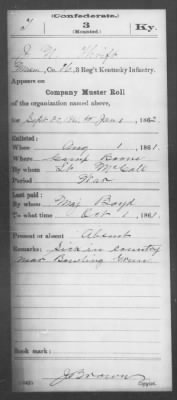 (Confederate.)
T 3 Ky.
(Mounted.)
Co. H, 3 Reg't Kentucky Infantry.
Appears on
Company Muster Roll
of the organization named above,
for Sept to Jan 1, 1862.
Enlisted:
When Aug 1, 1861
Where Camp Boone
By whom Lt McCall
Period War
Last paid:
By whom Maj Boyd
To what time Oct 1, 1861
Present or absent Absent
Remarks: Sick in country
near Bowling Green
Book mark:
J Brown
Copyist.